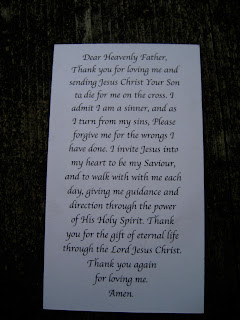 Dear Heavenly Father,
Thank you for loving me and
sending Jesus Christ Your Son
ta die for me on the cross. I
admit I am a sinner, and as
I turn from my sins, Please
forgive me for the wrongs I
have done. I invite Jesus into
my heart to be my Saviour,
and to walk with with me each
day, giving me guidance and
direction through the power
of His Holy Spirit. Thank
you for the gift of eternal life
through the Lord Jesus Christ.
Thank you again
for loving me.
Amen.